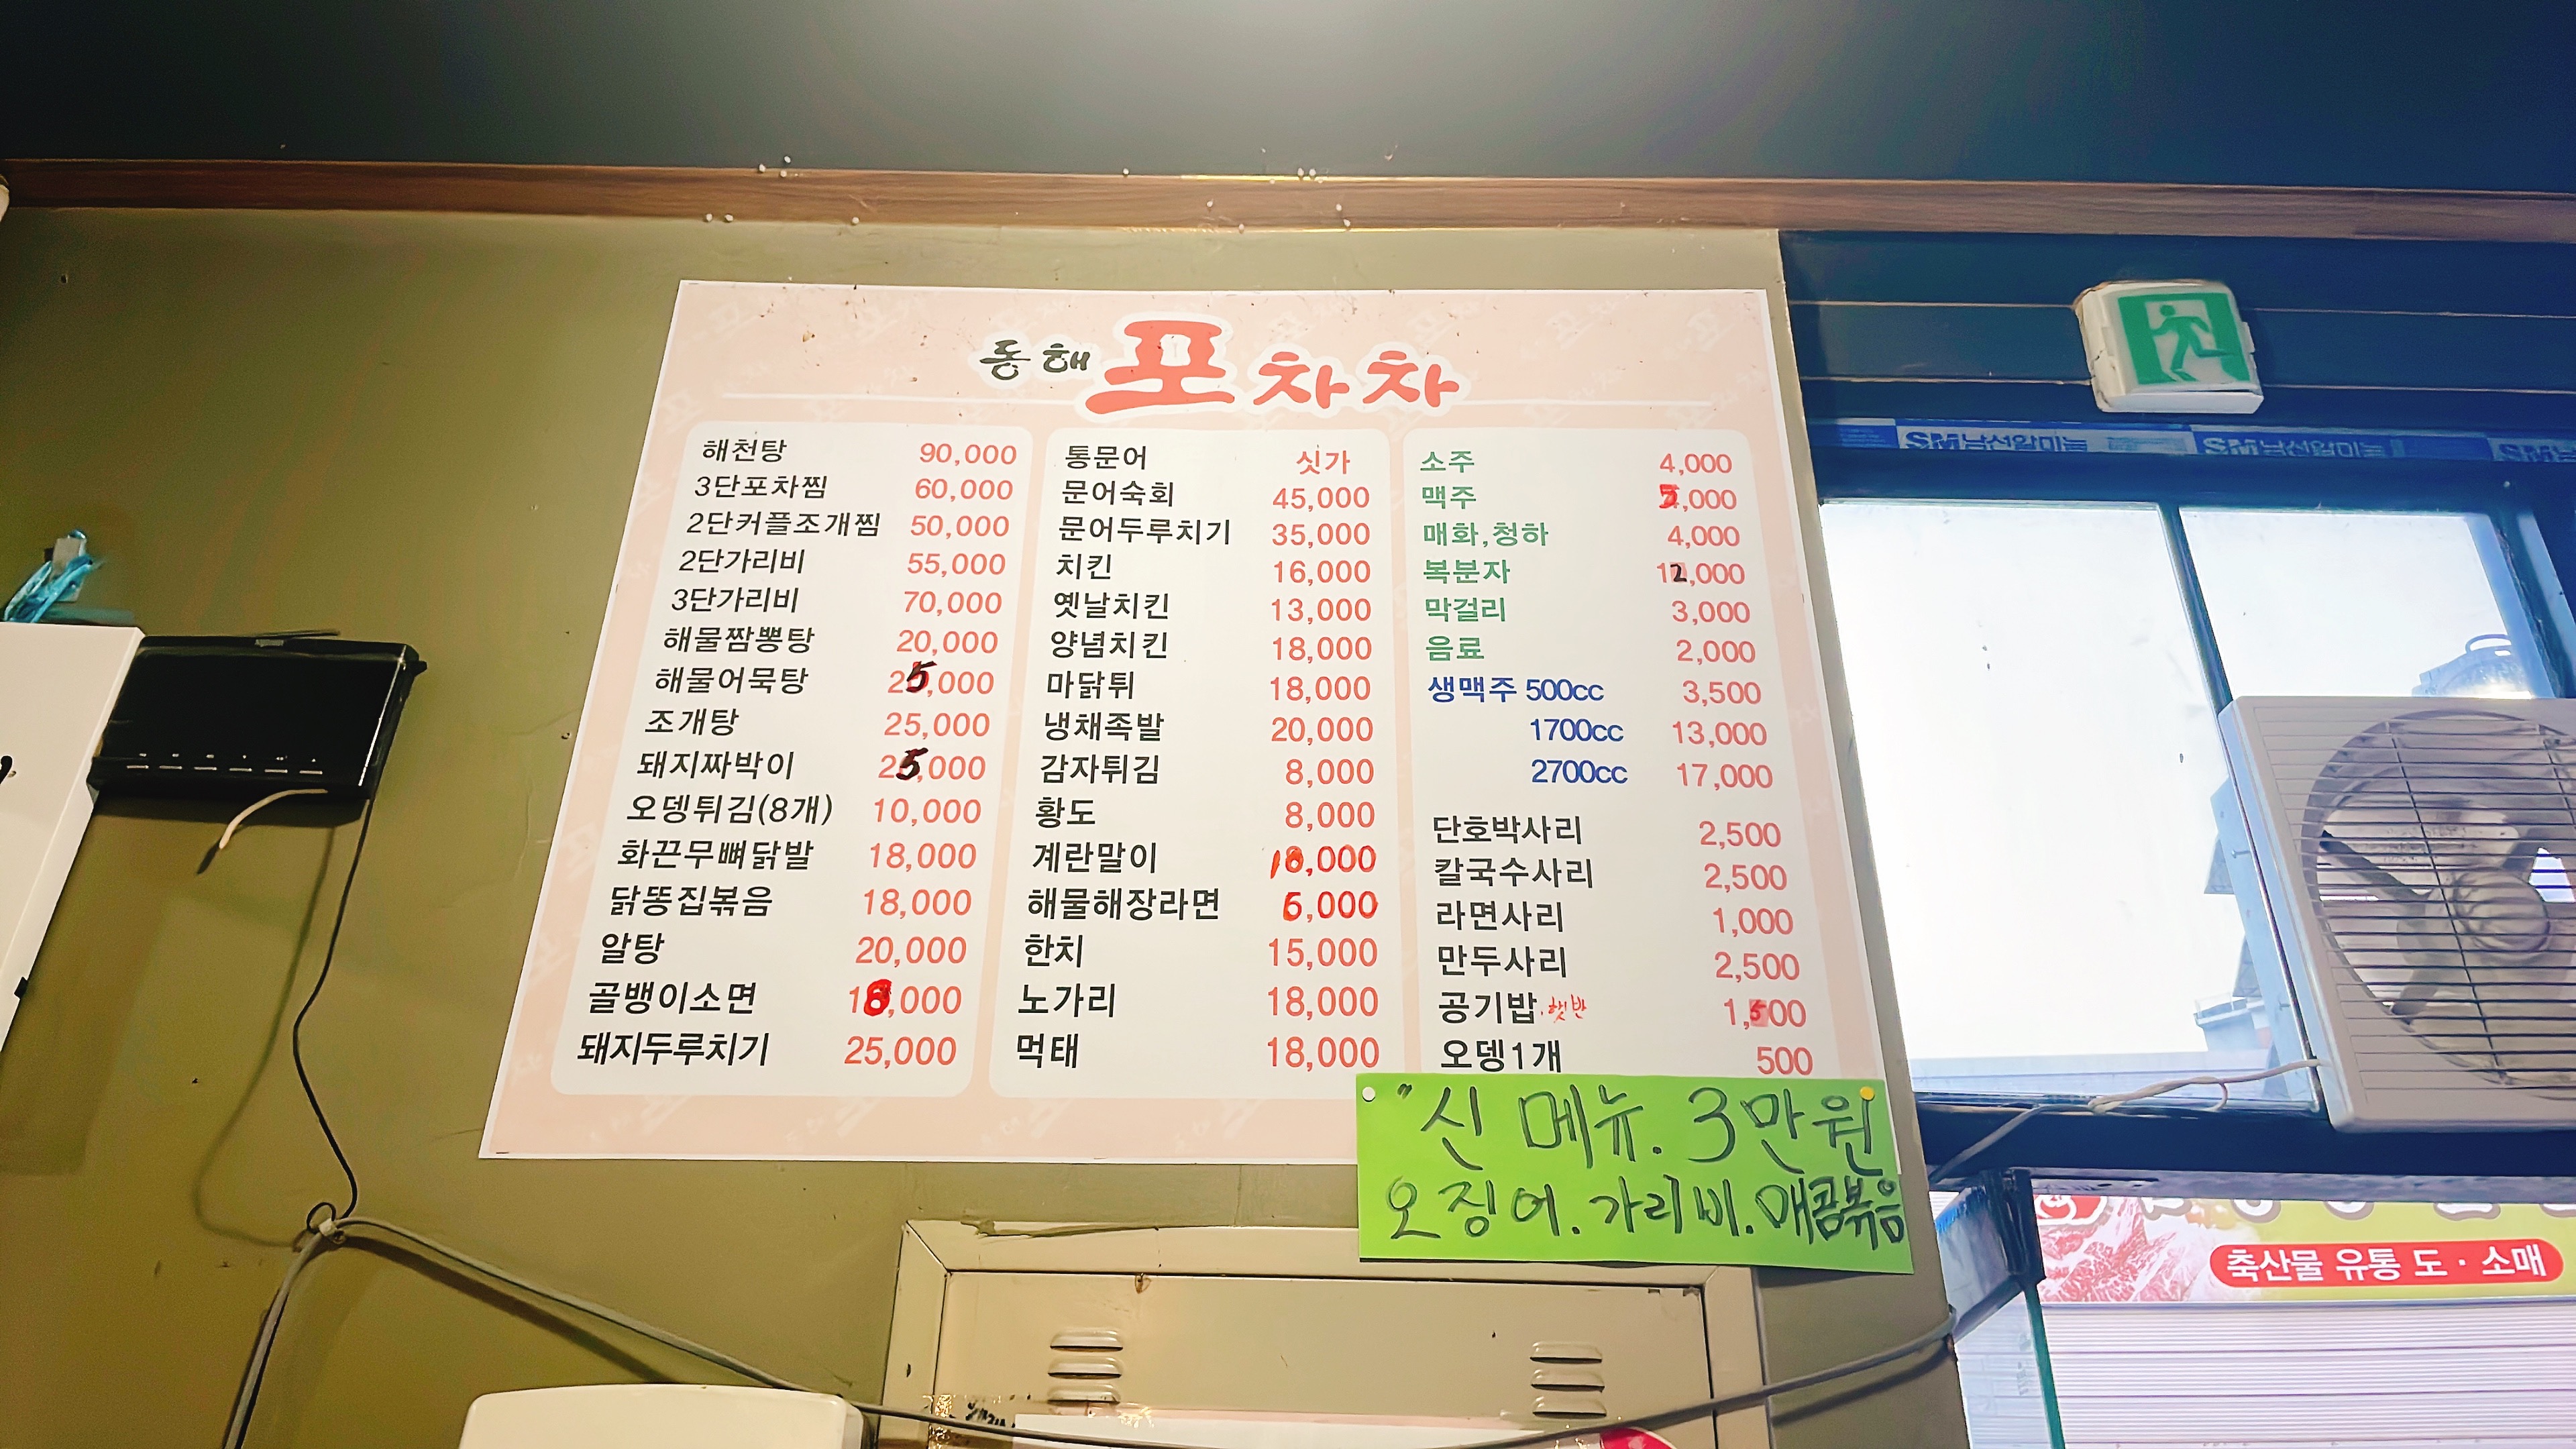 동해 포차차
해천탕 90,000
3단포차찜 60,000
2단커플조개찜 50,000
2단가리비 55,000
3단가리비 70,000
해물짬뽕탕 20,000
해물어묵탕 25,000
조개탕 25,000
돼지짜박이 25,000
오뎅튀김(8개) 10,000
화끈무뼈닭발 18,000
닭똥집볶음 18,000
알탕 20,000
골뱅이소면 18,000
돼지두루치기 25,000
통문어 싯가
문어숙회 45,000
문어두루치기 35,000
치킨 16,000
옛날치킨 13,000
양념치킨 18,000
마닭튀 18,000
냉채족발 20,000
감자튀김 8,000
황도 8,000
계란말이 10,000
해물해장라면 6,000
한치 15,000
노가리 18,000
먹태 18,000
소주 4,000
맥주 5,000
매화,청하 4,000
복분자 12,000
막걸리 3,000
음료 2,000
생맥주 500cc 3,500
1700cc 13,000
2700cc 17,000
단호박사리 2,500
칼국수사리 2,500
라면사리 1,000
만두사리 2,500
공기밥.햇반 1,500
오뎅1개 500
"신 메뉴. 3만원
오징어. 가리비. 매콤볶음
축산물 유통 도·소매